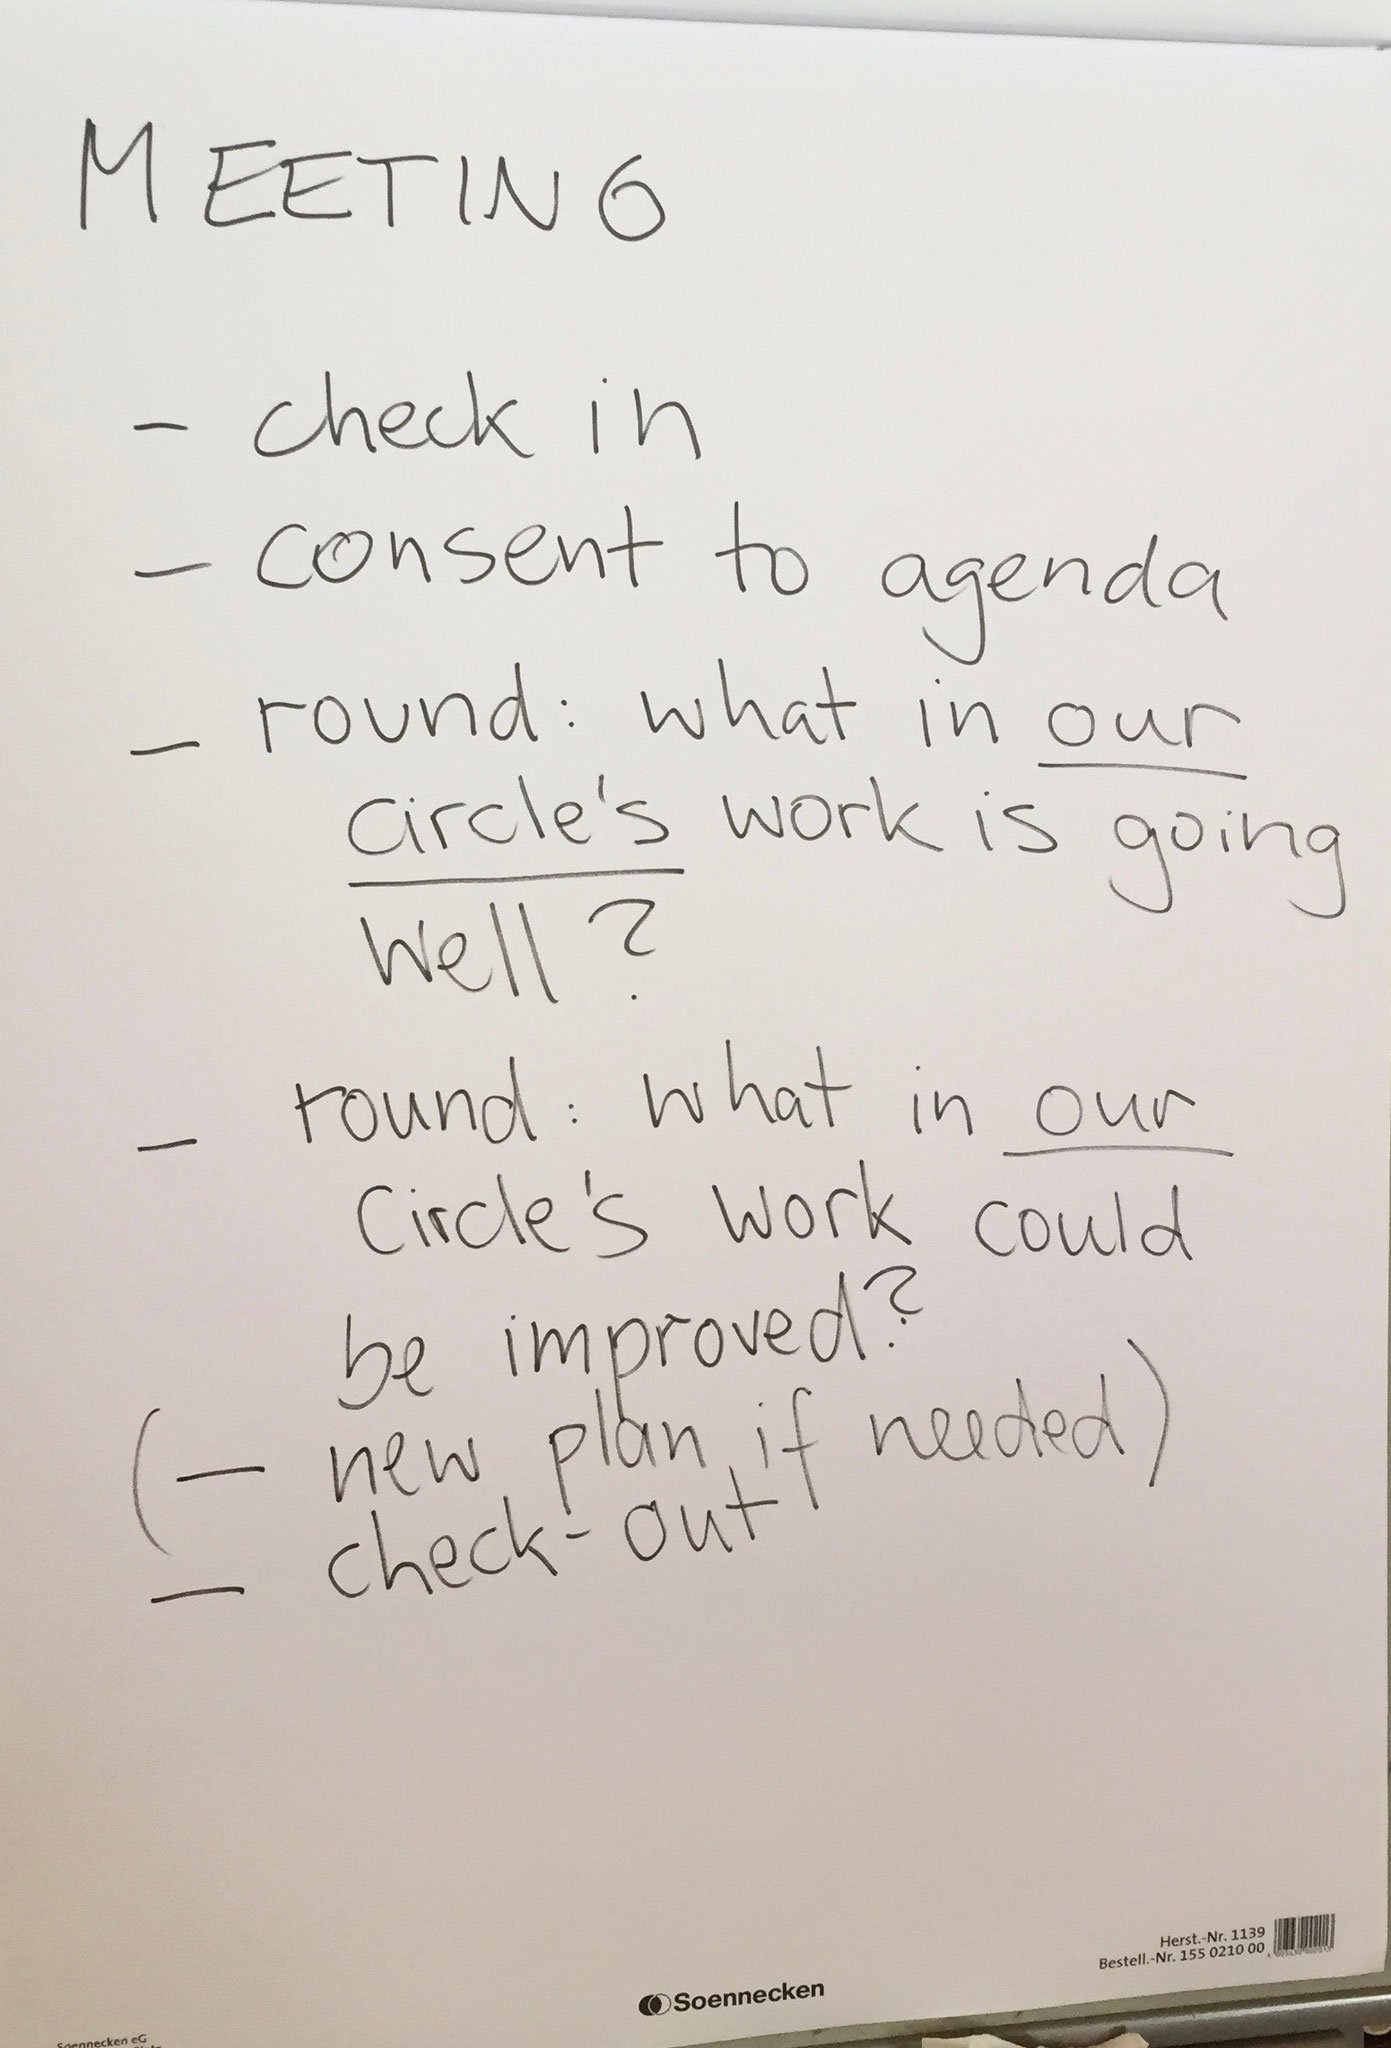 MEETING
- check in
- consent to agenda
- round: what in our
circle's work is going
well?
- round: what in our
Circle's work could
be improved?
(- new plan, if needed)
- check-out
Herst.-Nr. 1139
Bestell.-Nr. 155 0210 00
Soennecken
Soennecken eG